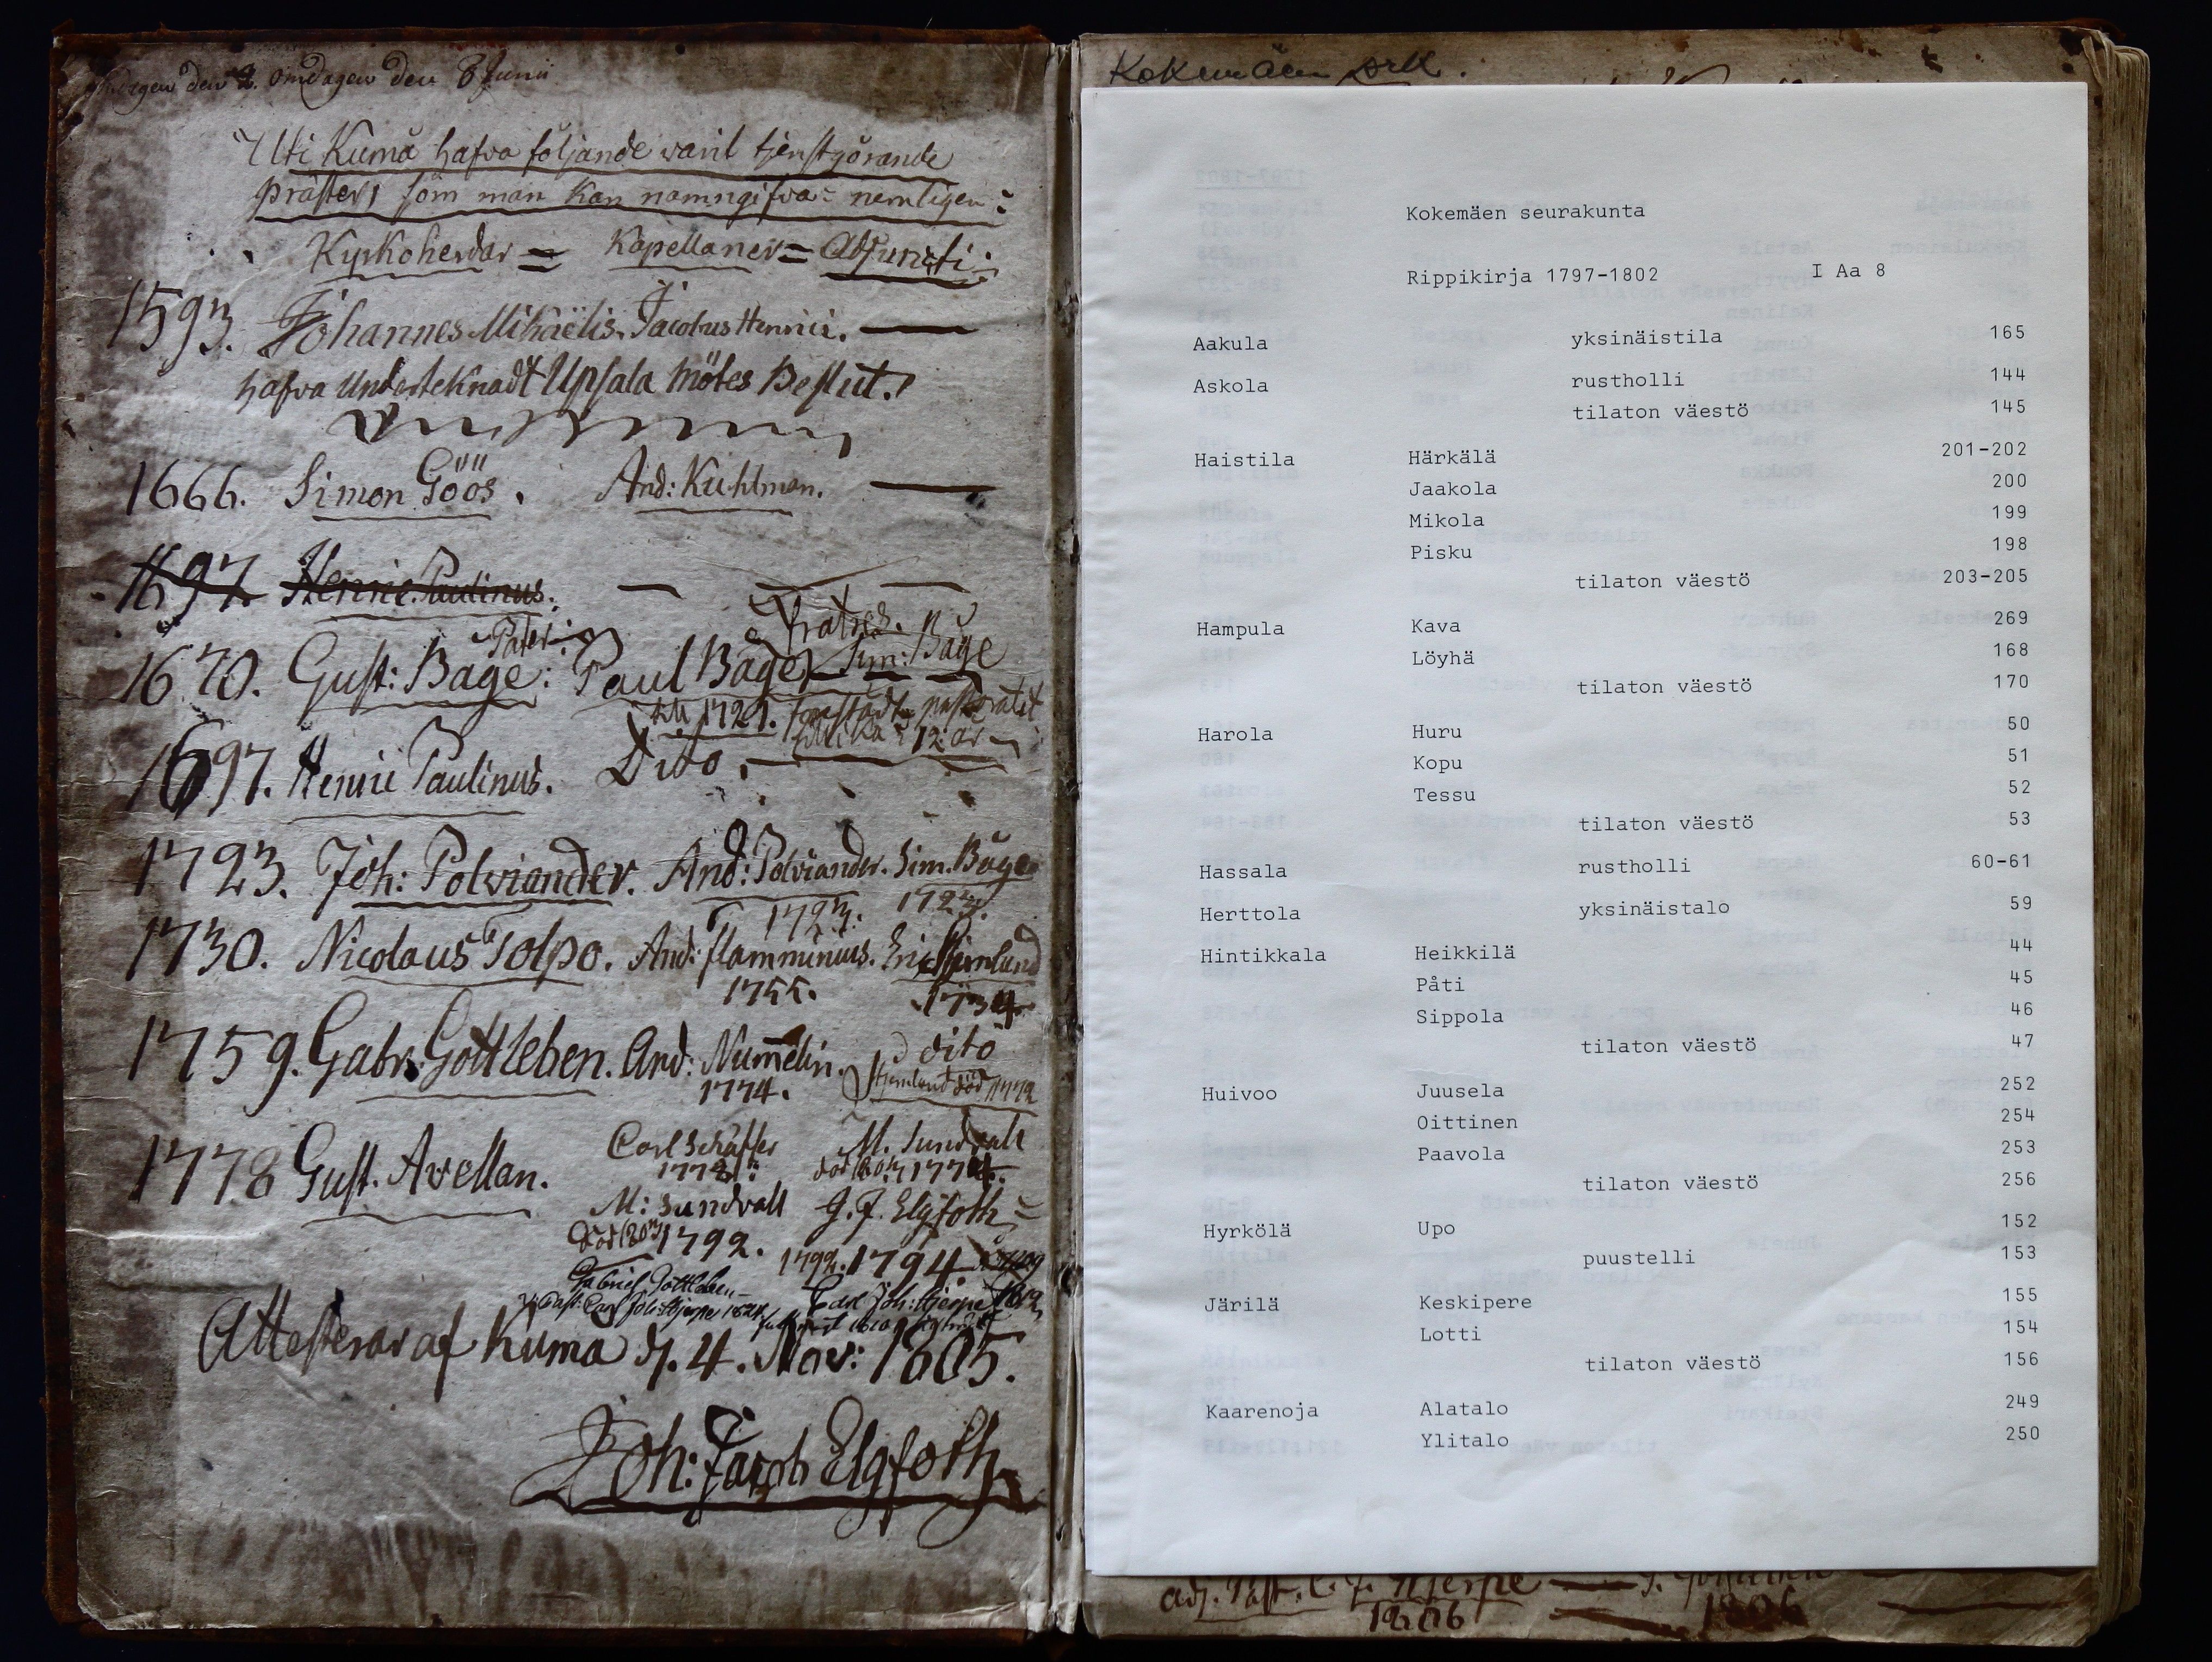 omdagen den 8 Junii
Uti Kumå hafva följande varit tjenstgörande
präster, som man kan namngifva - nemligen:
Kyrkoherdar = Kapellaner = Adjuncti:
1593. Johannes Mihaëlis. Jacobus Henrici.
hafva Underteknadt Upsala Mötes Beslut.
1666. Simon Göös. And: Kuhlman.
1697. Henric Paulinus.
Pater: Fratres.
1670. Gust: Båge: Paul Båge Sim: Båge
till 1721. förestådt pastoratet
12 år
1697. Henric Paulinus. Dito.
1723. Joh: Polviander. And: Polviander. Sim. Båge
1723. 1727.
1730. Nicolaus Tolpo. And: flamminius. Eric Stjernlund
1755. 1734.
1759. Gabr. Gottleben. And: Numelin. dito
1774. Stjernlund död 1772
1778 Gust. Avellan. Carl Schäffer M. Sundvall
M: Sundvall G. J. Elgfoth
1792. 1792. 1794
Gabriel Gottleben
Carl Joh: Stjerpe
Attesterar af Kumå d. 4. Nov: 1805.
Joh: Jacob Elgfoth
Kokemäen srk.
Kokemäen seurakunta
Rippikirja 1797-1802 I Aa 8
Aakula yksinäistila 165
Askola rustholli 144
tilaton väestö 145
Haistila Härkälä 201-202
Jaakola 200
Mikola 199
Pisku 198
tilaton väestö 203-205
Hampula Kava 269
Löyhä 168
tilaton väestö 170
Harola Huru 50
Kopu 51
Tessu 52
tilaton väestö 53
Hassala rustholli 60-61
Herttola yksinäistalo 59
Hintikkala Heikkilä 44
Påti 45
Sippola 46
tilaton väestö 47
Huivoo Juusela 252
Oittinen 254
Paavola 253
tilaton väestö 256
Hyrkölä Upo 152
puustelli 153
Järilä Keskipere 155
Lotti 154
tilaton väestö 156
Kaarenoja Alatalo 249
Ylitalo 250
1806 1806